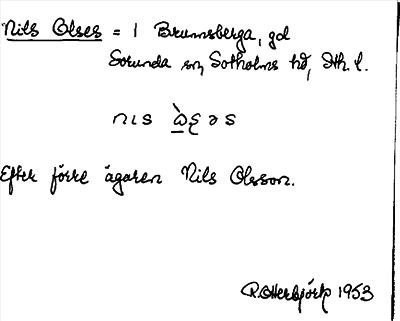 Nils Olses = 1 Brunnsberga, gd
Sorunda sn, Sotholms hd, Sth. l.
Efter förre ägaren Nils Olsson.
P. Otterbjörk 1953